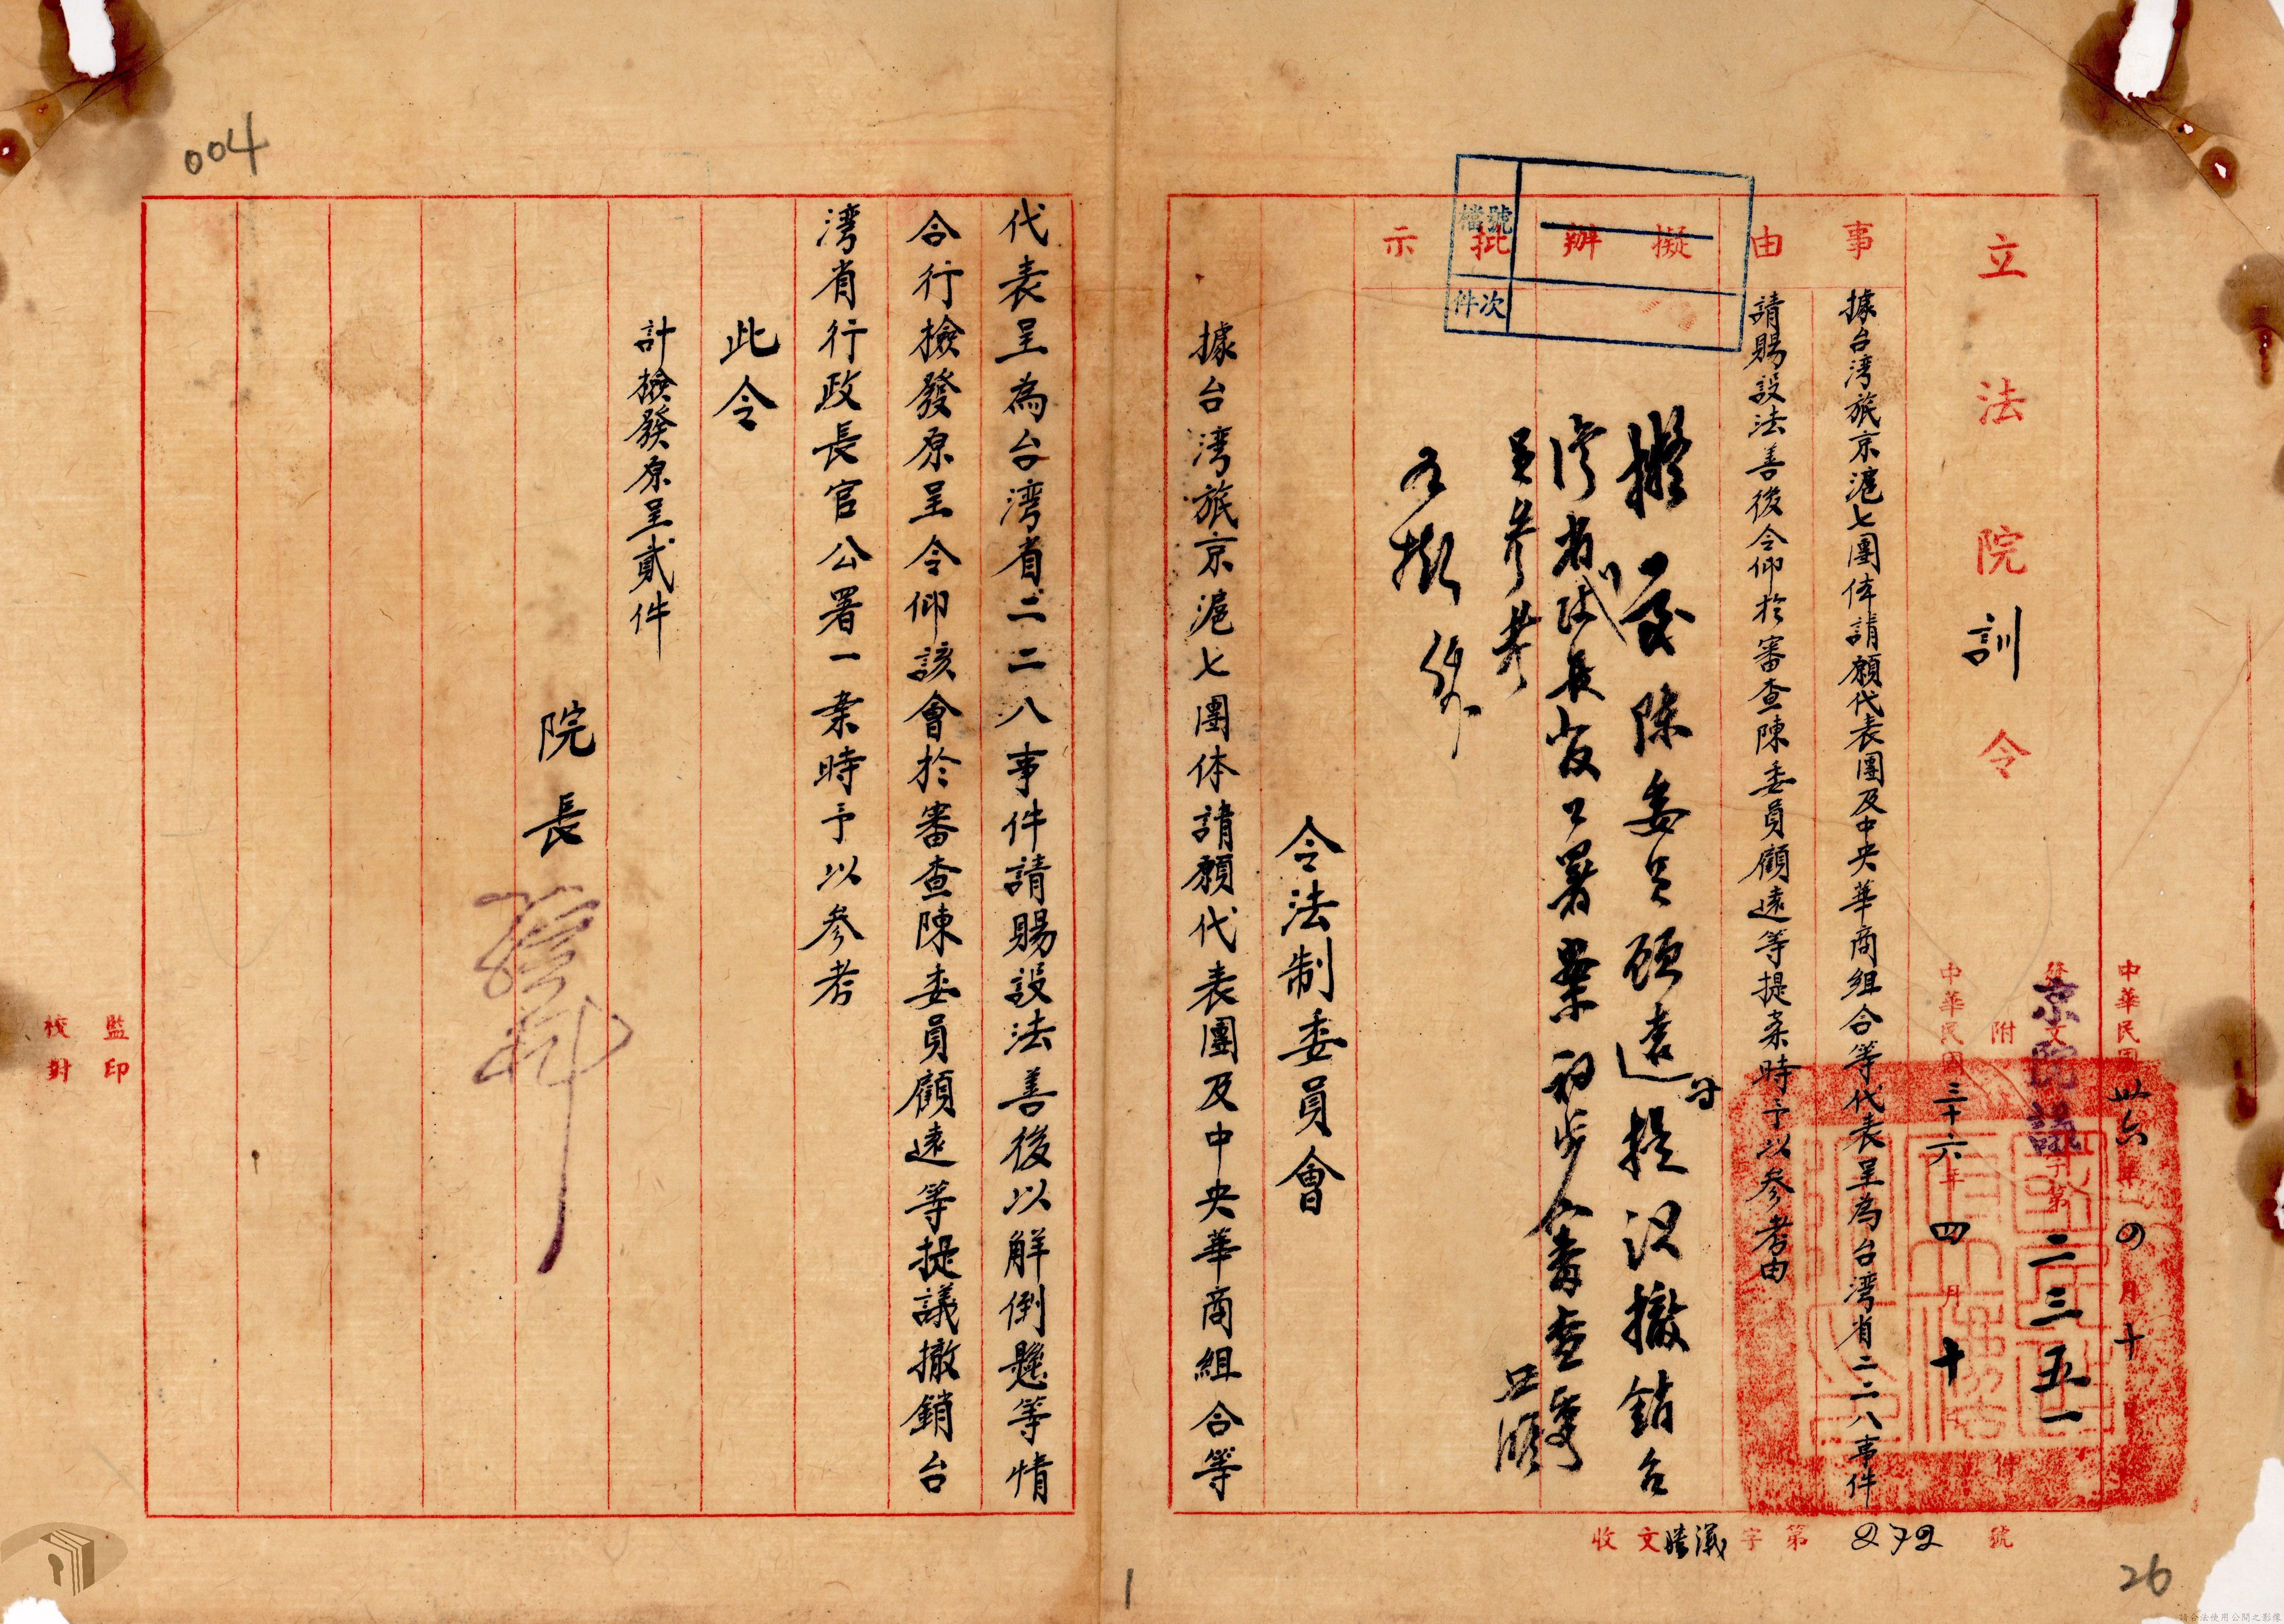 立法院訓令
中華民國卅六年四月十日
京院議字第二三五一
附件
中華民國三十六年四月十
事由
據台湾旅京滬七團体請願代表團及中央華商組合等代表呈為台湾省二二八事件
請賜設法善後令仰於審查陳委員顧遠等提案時予以參考由
擬辦
批示
檔號
件次
擬交陳委員顧遠等提议撤銷台
湾省行政長官公署案初步審查委
員參考
令法制委員會
據台湾旅京滬七團体請願代表團及中央華商組合等
代表呈為台湾省二二八事件請賜設法善後以解倒懸等情
合行檢發原呈令仰該會於審查陳委員顧遠等提議撤銷台
湾省行政長官公署一案時予以參考
此令
計檢發原呈貳件
院長
孫科
監印
校對
收文 字第272號
004
1
26
請合法使用公開之影像